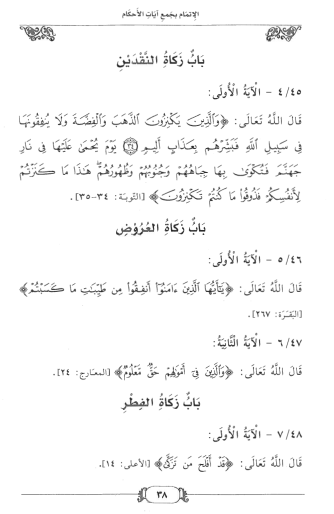 الإتمام بجمع آيات الأحكام
بَابُ زَكَاةِ النَّقْدَيْنِ
٤/٤٥ - الْآيَةُ الْأُولَى:
قَالَ اللَّهُ تَعَالَى: ﴿وَالَّذِينَ يَكْنِزُونَ الذَّهَبَ وَالْفِضَّةَ وَلَا يُنفِقُونَهَا
فِي سَبِيلِ اللَّهِ فَبَشِّرْهُم بِعَذَابٍ أَلِيمٍ ۝٣٤ يَوْمَ يُحْمَى عَلَيْهَا فِي نَارِ
جَهَنَّمَ فَتُكْوَى بِهَا جِبَاهُهُمْ وَجُنُوبُهُمْ وَظُهُورُهُمْ هَذَا مَا كَنَزْتُمْ
لِأَنفُسِكُمْ فَذُوقُوا مَا كُنتُمْ تَكْنِزُونَ﴾ [التَّوْبَة: ٣٤-٣٥].
بَابُ زَكَاةِ الْعُرُوْضِ
٥/٤٦ - الْآيَةُ الْأُولَى:
قَالَ اللَّهُ تَعَالَى: ﴿يَٰٓأَيُّهَا الَّذِينَ ءَامَنُوٓا أَنفِقُوا مِن طَيِّبَٰتِ مَا كَسَبْتُمْ﴾
[البَقَرَة: ٢٦٧].
٦/٤٧ - الْآيَةُ الثَّانِيَةُ:
قَالَ اللَّهُ تَعَالَى: ﴿وَالَّذِينَ فِيٓ أَمْوَٰلِهِمْ حَقٌّ مَّعْلُومٌ﴾ [المعَارج: ٢٤].
بَابُ زَكَاةِ الْفِطْرِ
٧/٤٨ - الْآيَةُ الْأُولَى:
قَالَ اللَّهُ تَعَالَى: ﴿قَدْ أَفْلَحَ مَن تَزَكَّىٰ﴾ [الأعلى: ١٤].
٣٨